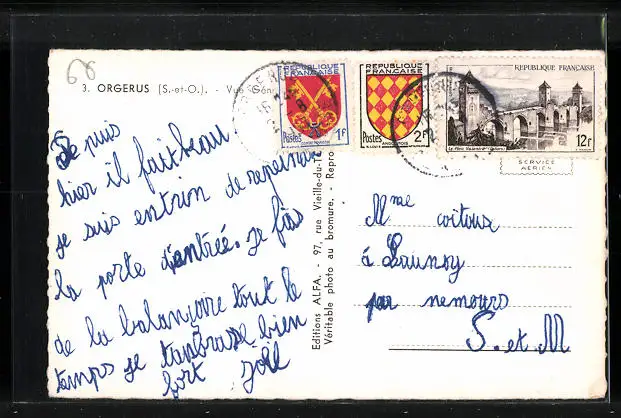 68
3. ORGERUS (S.-et-O.). - Vue Géné
REPUBLIQUE FRANÇAISE
Postes 1F
COMTAT VENAISSIN
REPUBLIQUE FRANÇAISE
Postes 2F
ANGOUMOIS
REPUBLIQUE FRANÇAISE
12F
Le Pont Valentré - Cahors
SERVICE AÉRIEN
De puis
hier il fait beau.
je suis entrin de repeindre
la porte d'entrée. je fais
de la balançoire tout le
temps je t'anbrasse bien
fort Joël
Editions ALFA. - 97, rue Vieille-du-Te
Véritable photo au bromure. - Repro
Mme coitoux
à Launoy
par nemours
S. et M